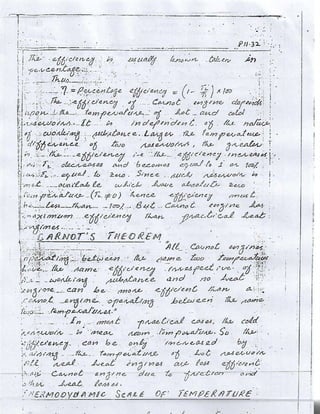 P11-32
The efficiency is usually known taken in
percentage.
Thus
η = Percentage efficiency = (1 - T₂/T₁) × 100
The efficiency of Carnot engine depends
upon the temperature of hot and cold
reservoirs. It is independent of the nature
of working substance. Larger the temperature
difference of two reservoirs, the greater
is the efficiency i.e the efficiency increases
as T₂ decreases and becomes equal to 1 or 100%
T₂ equal to zero. Since such reservoir is
not available which have absolute zero
temperature (T₂ ≠ 0) hence efficiency must
be less than 100%. But Carnot engine has
maximum efficiency than practical heat
engines.
CARNOT'S THEOREM
All Carnot engines
operating between the same two temperature
have the same efficiency irrespective of
working substance and no heat
engine can be more efficient than a
Carnot engine operating between the same
two temperatures."
In most practical cases, the cold
reservoir is near room temperature. So the
efficiency can be only increased by
raising the temperature of hot reservoir
All real heat engines are less efficient
than Carnot engine due to friction and
other heat losses.
THERMODYNAMIC SCALE OF TEMPERATURE